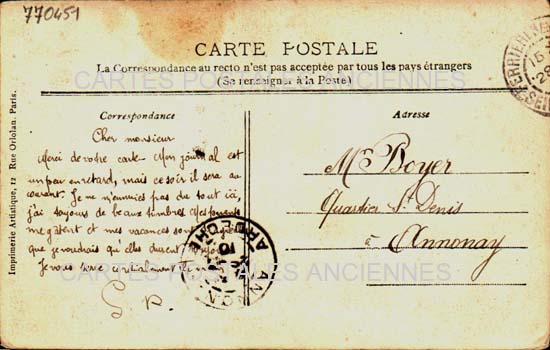 770451
CARTE POSTALE
La Correspondance au recto n'est pas acceptée par tous les pays étrangers
(Se renseigner à la Poste)
CARTES POSTALES ANCIENNES
Correspondance
Cher monsieur
Merci de votre carte Mon journal est
un peu en retard, mais ce soir il sera au
courant. Je ne m'ennuie pas du tout ici,
j'ai toujours de beaux timbres Mes parents
me gâtent et mes vacances sont
que je voudrais qu'elles durent
Je vous serre cordialement
G. P.
Adresse
Mr Boyer
Quartier St Denis
à Annonay
CARTES POSTALES ANCIENNES
ARDECHE
Imprimerie Artistique, 12 Rue Ortolan. Paris.